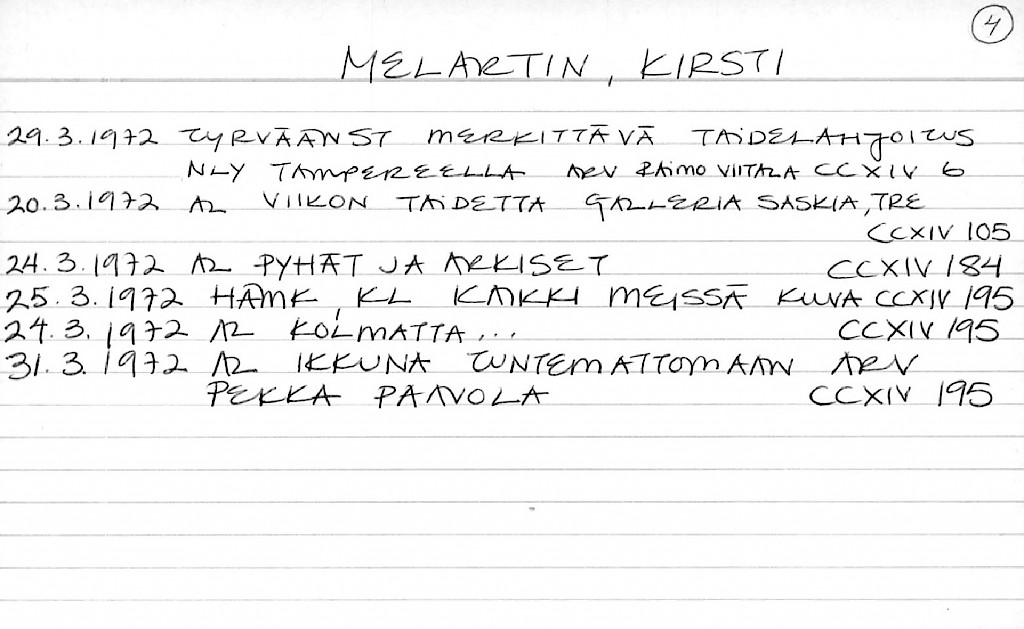 4
MELARTIN, KIRSTI
29.3.1972 TYRVÄÄNST MERKITTÄVÄ TAIDELAHJOITUS
NLY TAMPEREELLA ARV RAIMO VIITALA CCXIV 6
20.3.1972 AL VIIKON TAIDETTA GALLERIA SASKIA, TRE
CCXIV 105
24.3.1972 AL PYHÄT JA ARKISET CCXIV 184
25.3.1972 HÄMK, KL KAIKKI MEISSÄ KUVA CCXIV 195
24.3.1972 AL KOLMATTA... CCXIV 195
31.3.1972 AL IKKUNA TUNTEMATTOMAAN ARV
PEKKA PAAVOLA CCXIV 195